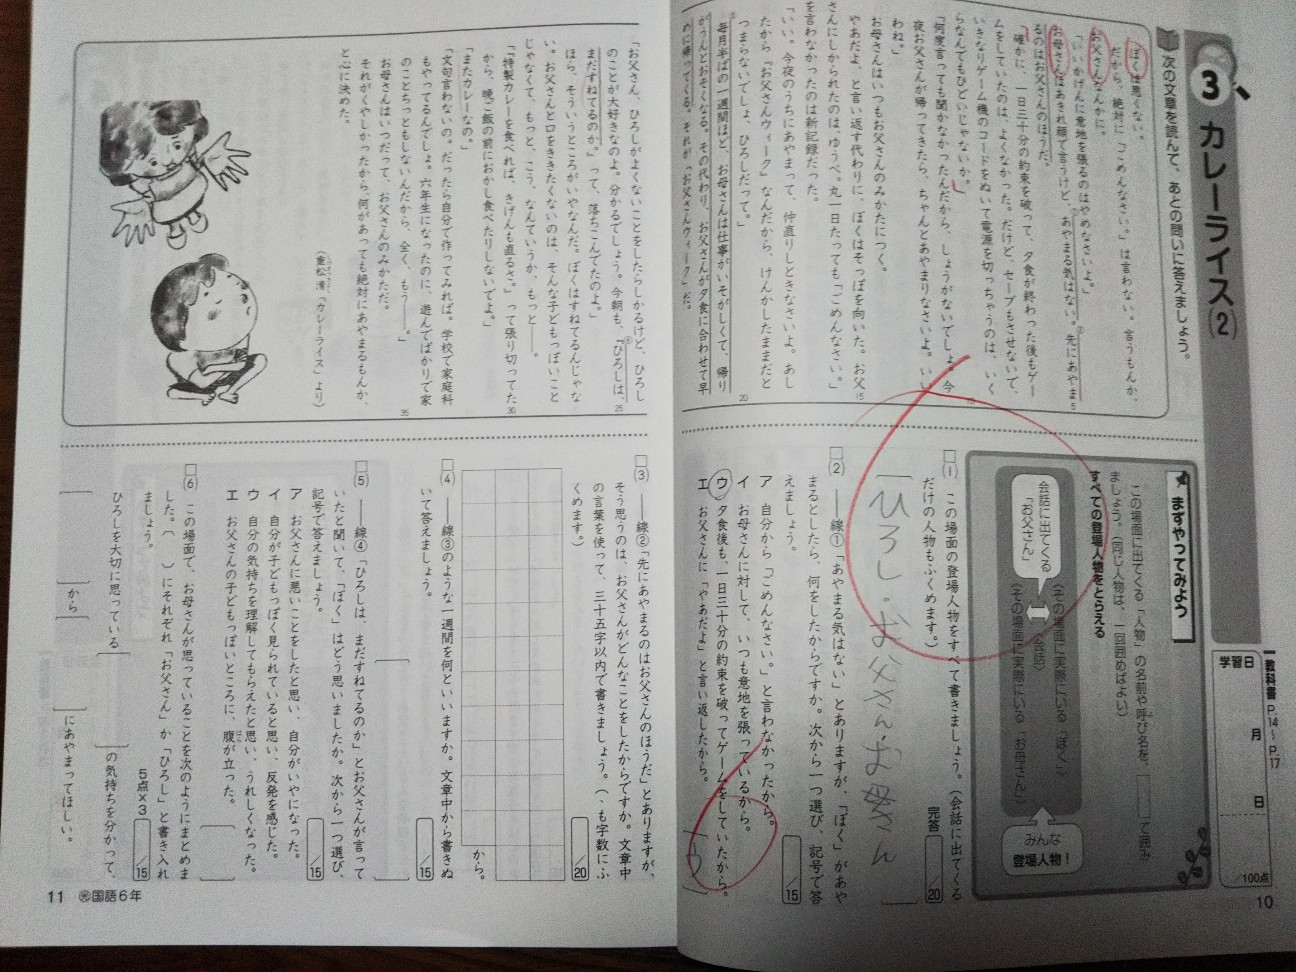 3 カレーライス(2)
教科書 P.14~P.17
学習日 月 日
/100点
次の文章を読んで、あとの問いに答えましょう。
ぼくは悪くない。
だから、絶対に「ごめんなさい。」は言わない。言うもんか、
お父さんなんかに。
「いいかげんに意地を張るのはやめなさいよ。」
お母さんはあきれ顔で言うけど、①あやまる気はない。②先にあやま
るのはお父さんのほうだ。
確かに、一日三十分の約束を破って、夕食が終わった後もゲー
ムをしていたのは、よくなかった。だけど、セーブもさせないで、
いきなりゲーム機のコードをぬいて電源を切っちゃうのは、いく
らなんでもひどいじゃないか。
「何度言っても聞かなかったんだから、しょうがないでしょ。今
夜お父さんが帰ってきたら、ちゃんとあやまりなさいよ。いい
わね。」
お母さんはいつもお父さんのみかたにつく。
やあだよ、と言い返す代わりに、ぼくはそっぽを向いた。お父
さんにしかられたのは、ゆうべ。丸一日たっても「ごめんなさい。」
を言わなかったのは新記録だった。
「いい。今夜のうちにあやまって、仲直りしときなさいよ。あし
たから「お父さんウィーク」なんだから、けんかしたままだと
つまらないでしょ、ひろしだって。」
③毎月半ばの一週間ほど、お母さんは仕事がいそがしくて、帰り
がうんとおそくなる。その代わり、お父さんが夕食に合わせて早
めに帰ってくる。それが「お父さんウィーク」だ。
「お父さん、ひろしがよくないことをしたらしかるけど、ひろし
のことが大好きなのよ。分かるでしょう。今朝も、④「ひろしは、
まだすねてるのか。」って、落ちこんでたのよ。」
ほら、そういうところがいやなんだ。ぼくはすねてるんじゃな
い。お父さんと口をききたくないのは、そんな子どもっぽいこと
じゃなくて、もっと、こう、なんていうか、もっと――。
「「特製カレーを食べれば、きげんも直るさ。」って張り切ってた
から、晩ご飯の前におかし食べたりしないでよ。」
「またカレーなの。」
「文句言わないの。だったら自分で作ってみれば。学校で家庭科
もやってるんでしょ。六年生になったのに、遊んでばかりで家
のことちっともしないんだから、全く、もう――。」
お母さんはいつだって、お父さんのみかただ。
それがくやしかったから、何があっても絶対にあやまるもんか、
と心に決めた。
(重松清「カレーライス」より)
5
15
20
25
30
35
まずやってみよう
この場面に出てくる「人物」の名前や呼び名を、□で囲み
ましょう。(同じ人物は、一回囲めばよい)
すべての登場人物をとらえる
会話に出てくる
「お父さん」
(その場面に実際にいる「ぼく」)
会話
(その場面に実際にいる「お母さん」)
みんな
登場人物!
□(1) この場面の登場人物をすべて書きましょう。(会話に出てくる
だけの人物もふくめます。)
完答 /20
ひろし・お父さん・お母さん
□(2) ――線①「あやまる気はない」とありますが、「ぼく」があや
まるとしたら、何をしたからですか。次から一つ選び、記号で答
えましょう。
/15
ア 自分から「ごめんなさい。」と言わなかったから。
イ お母さんに対して、いつも意地を張っているから。
ウ 夕食後も、一日三十分の約束を破ってゲームをしていたから。
エ お父さんに「やあだよ」と言い返したから。
ウ
□(3) ――線②「先にあやまるのはお父さんのほうだ」とありますが、
そう思うのは、お父さんがどんなことをしたからですか。文章中
の言葉を使って、三十五字以内で書きましょう。(、も字数にふ
くめます。)
/20
から。
□(4) ――線③のような一週間を何といいますか。文章中から書きぬ
いて答えましょう。
/15
□(5) ――線④「ひろしは、まだすねてるのか」とお父さんが言って
いたと聞いて、「ぼく」はどう思いましたか。次から一つ選び、
記号で答えましょう。
/15
ア お父さんに悪いことをしたと思い、自分がいやになった。
イ 自分が子どもっぽく見られていると思い、反発を感じた。
ウ 自分の気持ちを理解してもらえたと思い、うれしくなった。
エ お父さんの子どもっぽいところに、腹が立った。
□(6) この場面で、お母さんが思っていることを次のようにまとめま
した。( )にそれぞれ「お父さん」か「ひろし」と書き入れ
ましょう。
5点×3 /15
ひろしを大切に思っている( )の気持ちを分かって、
( )から( )にあやまってほしい。
10
11 国語6年